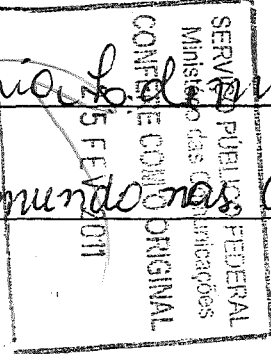 SERVIÇO PÚBLICO FEDERAL
Ministério das Comunicações
CONFERE COM O ORIGINAL
25 FEV 2011
mundo nas